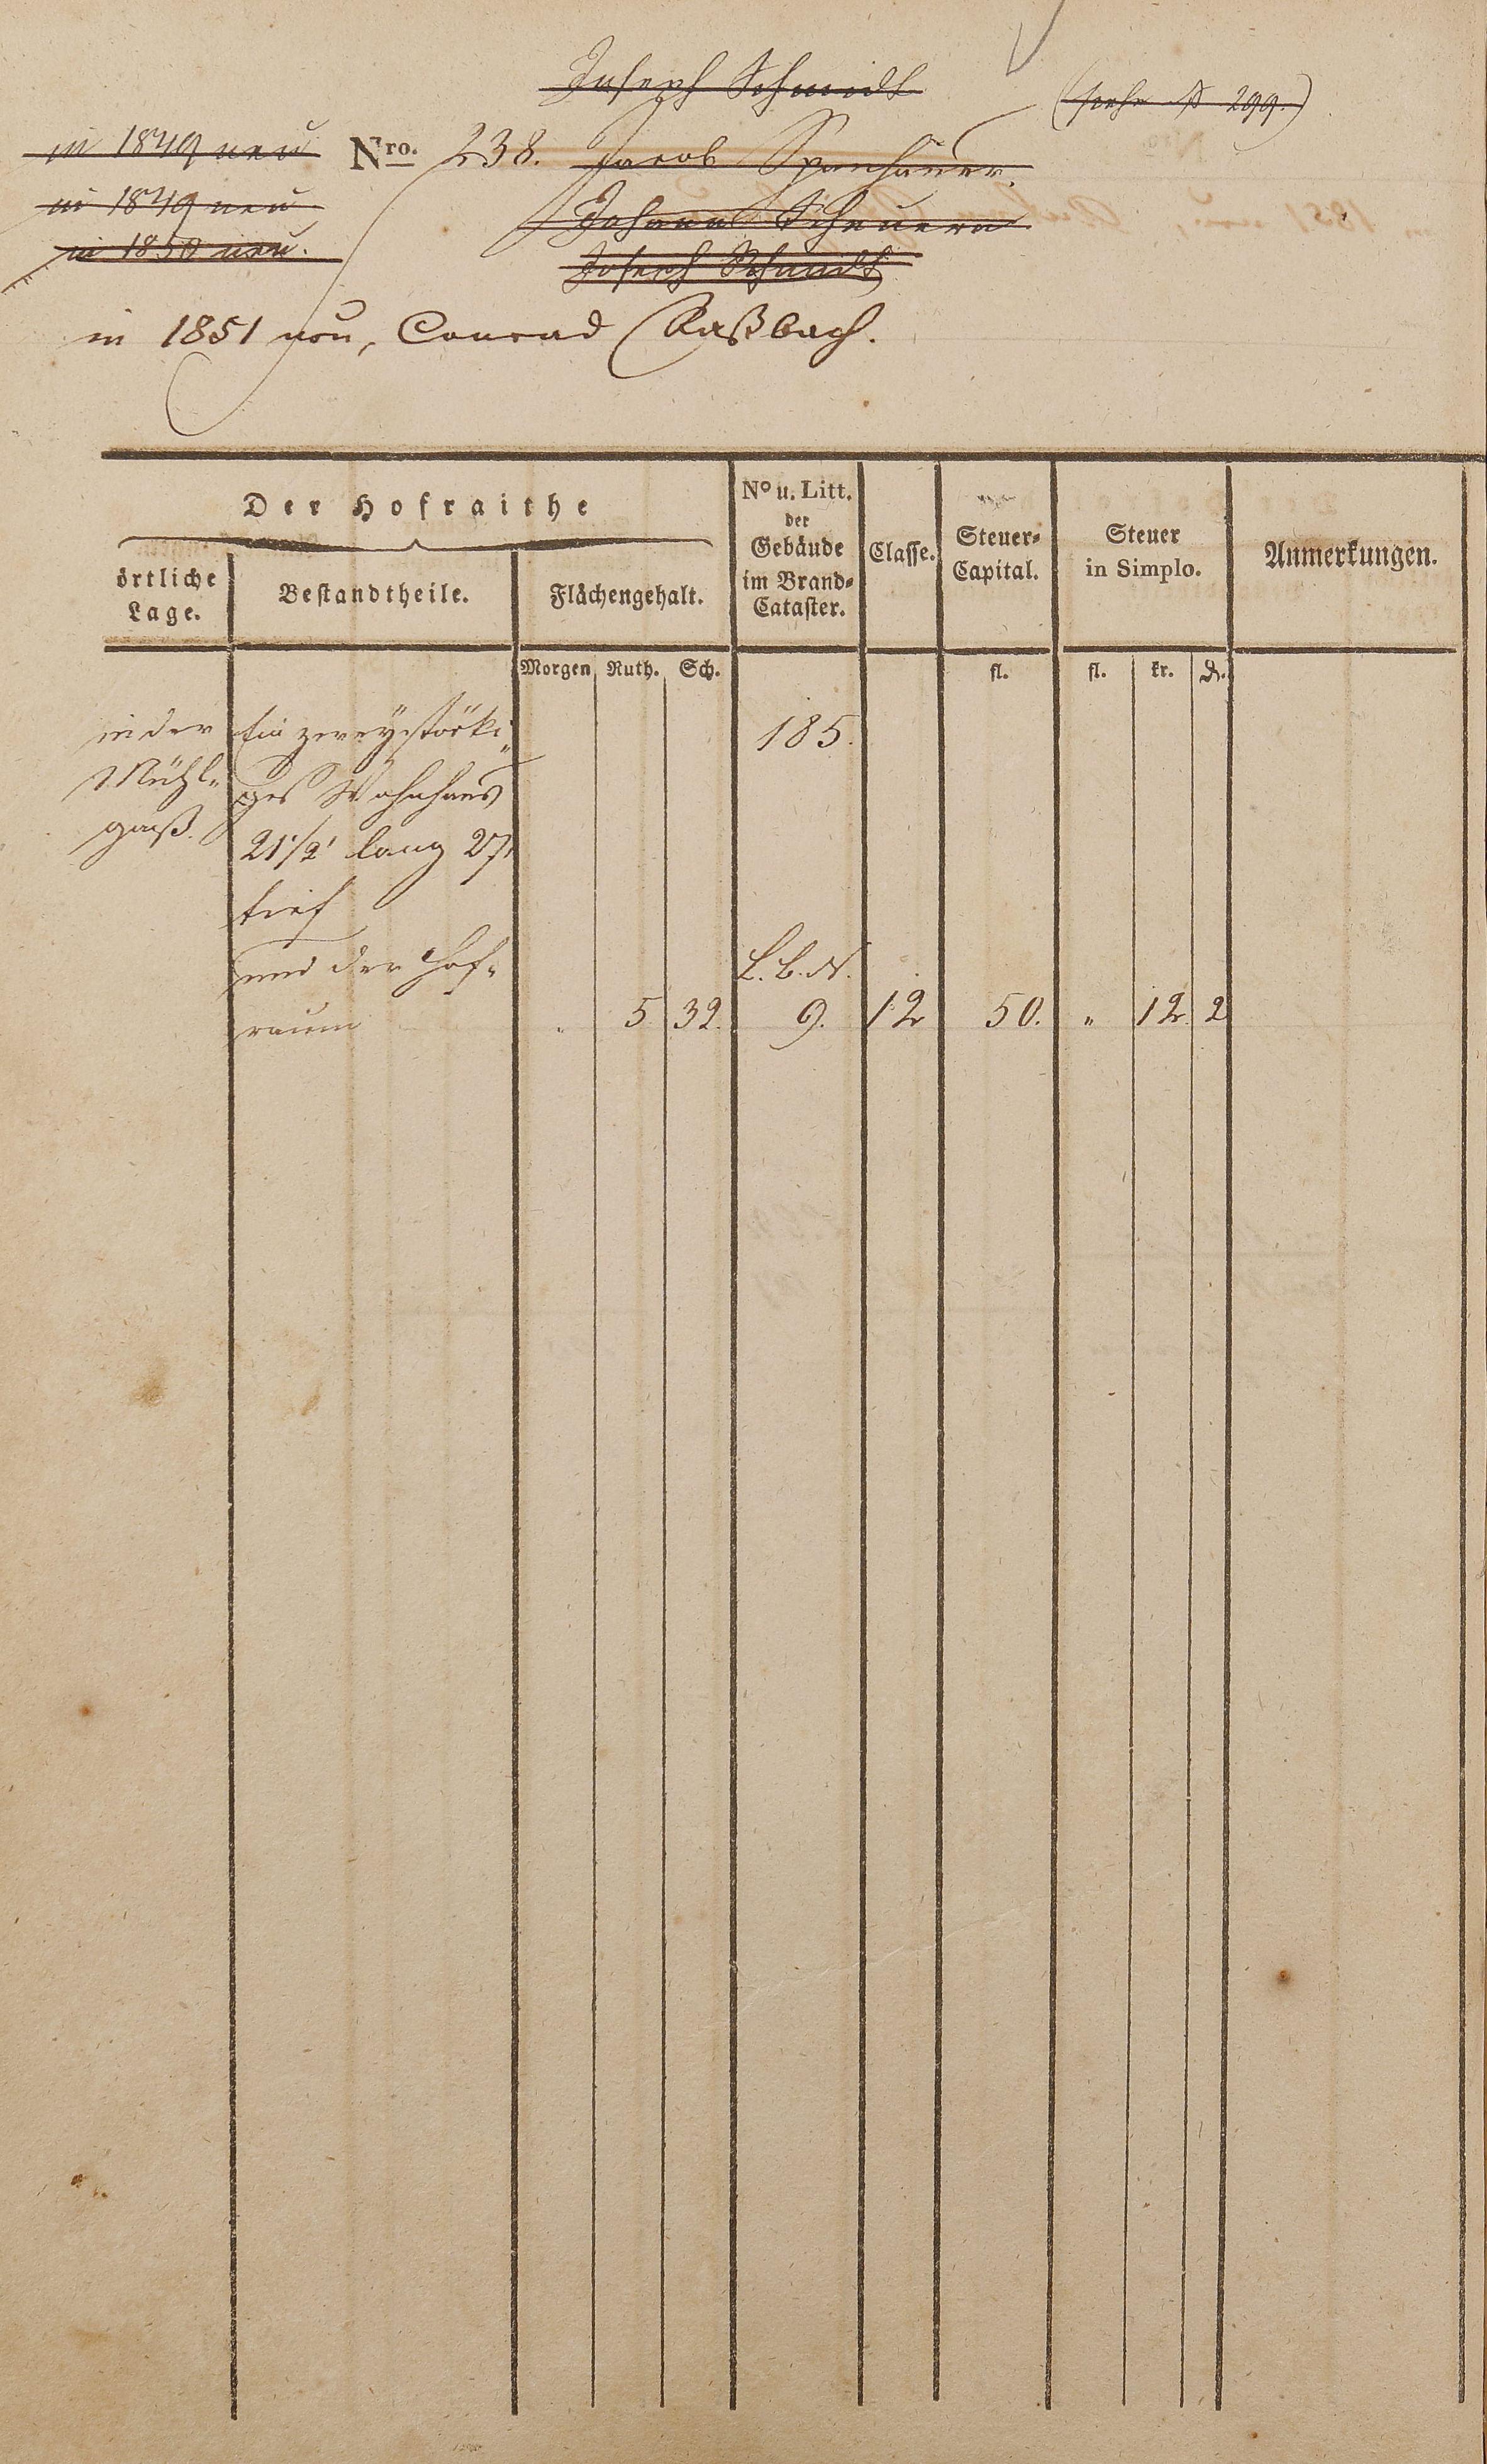 Joseph Schmidt
(siehe № 299.)
in 1849 neu Nro. 238. Jacob Spenhauer.
in 1849 neu Johann Scheuern
in 1850 neu. Joseph Schmidt
in 1851 neu, Conrad Kaßbach.
Der Hofraithe
örtliche Lage.
Bestandtheile.
Flächengehalt.
No u. Litt.
der
Gebäude
im Brand-
Cataster.
Classe.
Steuer-
Capital.
Steuer
in Simplo.
Anmerkungen.
Morgen Ruth. Sch. fl. fl. kr. ₰.
in der Ein zweystöki- 185.
Mühl- ges Wohnhaus
gaß. 21 1/2' lang 27'
tief
und der Hof- L. B. N.
raum " 5. 32. 9. 12 50. " 12. 2